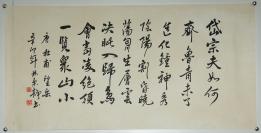 岱宗夫如何
齊魯青未了
造化鍾神秀
陰陽割昏曉
蕩胸生層雲
決眥入歸鳥
會當凌絕頂
一覽眾山小
唐杜甫望岳